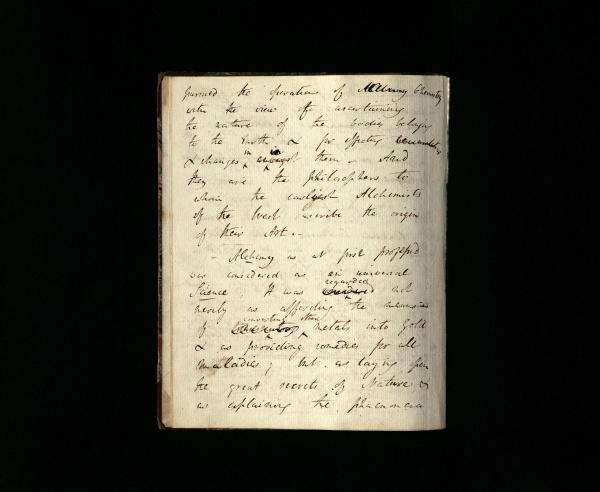 pursued the operations of Chemistry
with the view of ascertaining
the nature of the bodies belong
to the Earth, & for effecting
& changes in them – And
they are the Philosophers to
whom the earliest Alchemists
of the West ascribe the origin
of their Art. –
– Alchemy as at first professed
was considered as an universal
Science; It was regarded not
merely as affording the means
of converting other metals into Gold
& as providing remedies for all
maladies; but as laying open
the great secrets of Nature &
as explaining the phaenomena